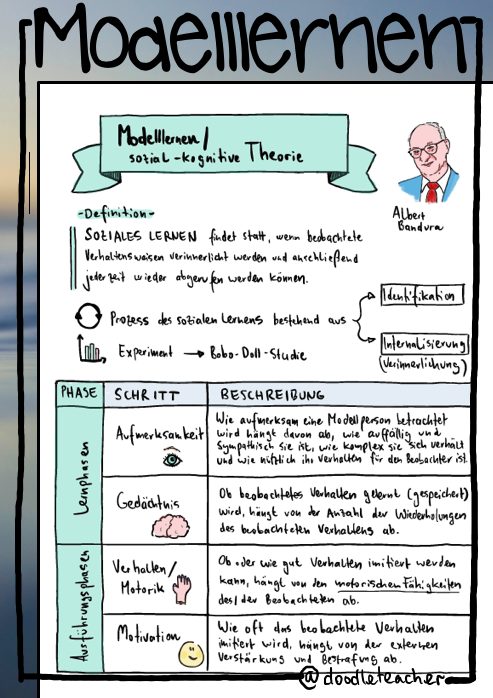 Modelllernen
Modelllernen/
sozial-kognitive Theorie
Albert
Bandura
-Definition-
SOZIALES LERNEN findet statt, wenn beobachtete
Verhaltensweisen verinnerlicht werden und anschließend
jederzeit wieder abgerufen werden können.
Prozess des sozialen Lernens bestehend aus
Identifikation
Internalisierung
(Verinnerlichung)
Experiment → Bobo-Doll-Studie
PHASE SCHRITT BESCHREIBUNG
Lernphasen
Aufmerksamkeit
Wie aufmerksam eine Modellperson betrachtet
wird hängt davon ab, wie auffällig und
Sympathisch sie ist, wie komplex sie sich verhält
und wie nützlich ihr Verhalten für den Beobachter ist.
Gedächtnis
Ob beobachtetes Verhalten gelernt (gespeichert)
wird, hängt von der Anzahl der Wiederholungen
des beobachteten Verhaltens ab.
Ausführungsphasen
Verhalten/
Motorik
Ob oder wie gut Verhalten imitiert werden
kann, hängt von den motorischen Fähigkeiten
des/der Beobachteten ab.
Motivation
Wie oft das beobachtete Verhalten
imitiert wird, hängt von der externen
Verstärkung und Bestrafung ab.
@doodleteacher